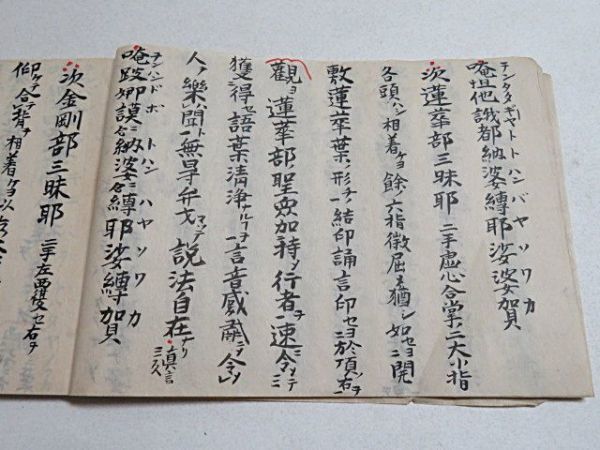 唵怛他誐都納婆縛耶娑婆賀
次蓮華部三昧耶 二手虚心合掌二大小指
各頭ハシ相着ケヨ餘ノ六指微屈シ猶シ如ニヨ開
敷蓮華葉ノ形チノ一結印誦言印セヨ於頂右ニ
觀ヨ蓮華部聖衆加持シ行者ヲ速令
獲得セ語業清浄ナルヿヲ言音威肅ニシテ令
人ノ樂ハ聞ト無㝵弁才説法自在ナリ 真言三反
唵跛娜謨納婆縛耶娑縛賀
次金剛部三昧耶 二手左覆セ右ヲ
仰ケテ合背ヲ相着ケヨ以